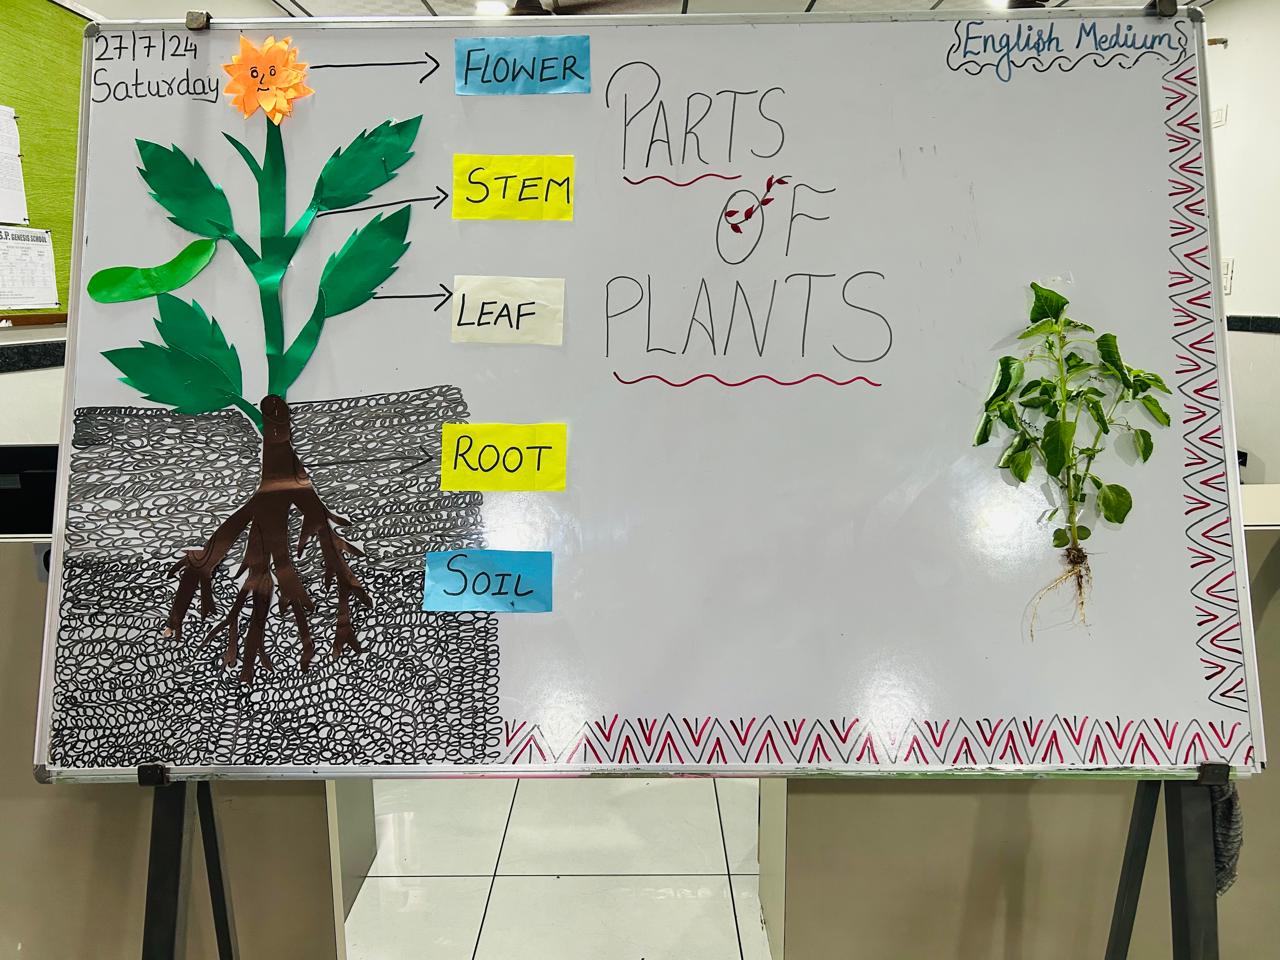 27/7/24
Saturday
English Medium
PARTS
OF
PLANTS
FLOWER
STEM
LEAF
ROOT
SOIL
S.P. GENESIS SCHOOL